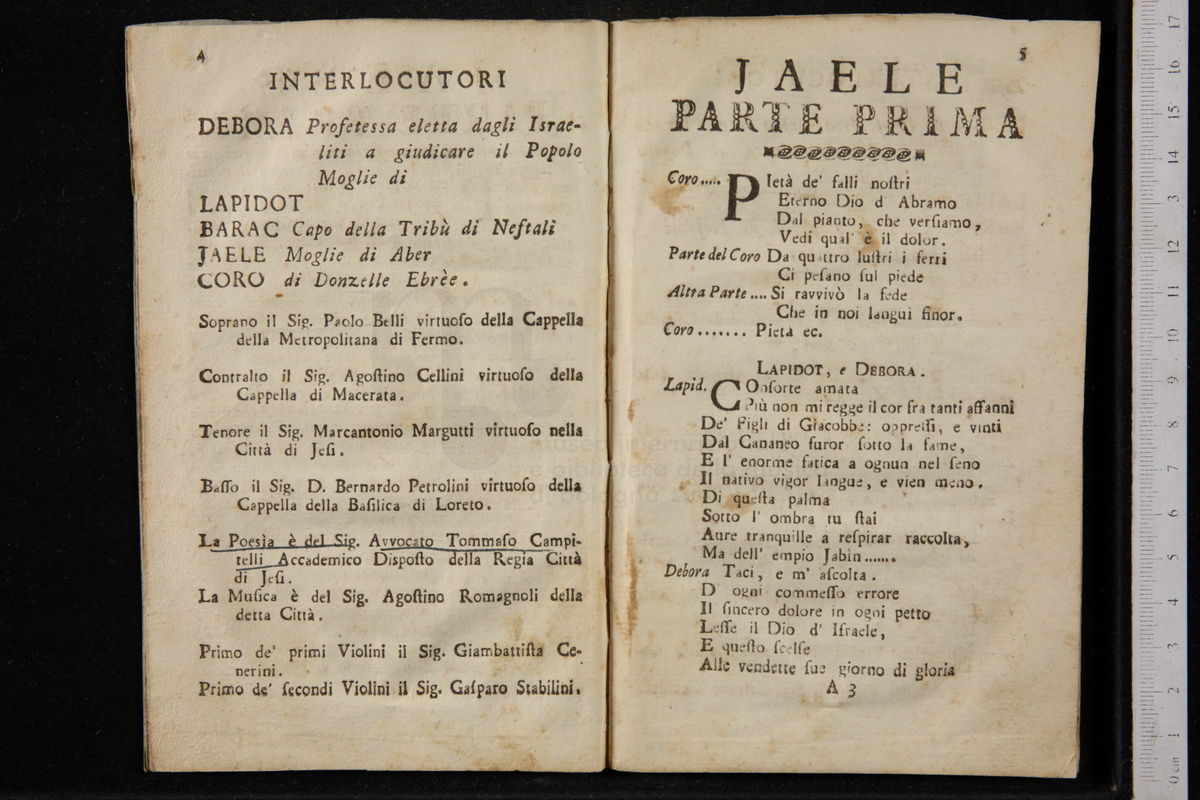 4
INTERLOCUTORI
DEBORA Profetessa eletta dagli Israe-
liti a giudicare il Popolo
Moglie di
LAPIDOT
BARAC Capo della Tribù di Neftalì
JAELE Moglie di Aber
CORO di Donzelle Ebrèe.
Soprano il Sig. Paolo Belli virtuoſo della Cappella
della Metropolitana di Fermo.
Contralto il Sig. Agoſtino Cellini virtuoſo della
Cappella di Macerata.
Tenore il Sig. Marcantonio Margutti virtuoſo nella
Città di Jeſi.
Baſſo il Sig. D. Bernardo Petrolini virtuoſo della
Cappella della Baſilica di Loreto.
La Poesìa è del Sig. Avvocato Tommaſo Campi-
telli Accademico Diſpoſto della Regia Città
di Jeſi.
La Muſica è del Sig. Agoſtino Romagnoli della
detta Città.
Primo de' primi Violini il Sig. Giambattiſta Ce-
nerini.
Primo de' ſecondi Violini il Sig. Gaſparo Stabilini.
5
JAELE
PARTE PRIMA
Coro..... PIetà de' falli noſtri
Eterno Dio d' Abramo
Dal pianto, che verſiamo,
Vedi qual' è il dolor.
Parte del Coro Da quattro luſtri i ferri
Ci peſano ſul piede
Altra Parte .... Si ravvivò la fede
Che in noi languì finor.
Coro ....... Pietà ec.
LAPIDOT, e DEBORA.
Lapid. COnſorte amata
Più non mi regge il cor fra tanti affanni
De' Figli di Giacobbe: oppreſſi, e vinti
Dal Cananeo furor ſotto la fame,
E l' enorme fatica a ognun nel ſeno
Il nativo vigor langue, e vien meno.
Di queſta palma
Sotto l' ombra tu ſtai
Aure tranquille a reſpirar raccolta,
Ma dell' empio Jabìn.......
Debora Taci, e m' aſcolta.
D' ogni commeſſo errore
Il ſincero dolore in ogni petto
Leſſe il Dio d' Iſraele,
E queſto ſcelſe
Alle vendette ſue giorno di gloria
A 3
0 cm 1 2 3 4 5 6 7 8 9 10 11 12 13 14 15 16 17